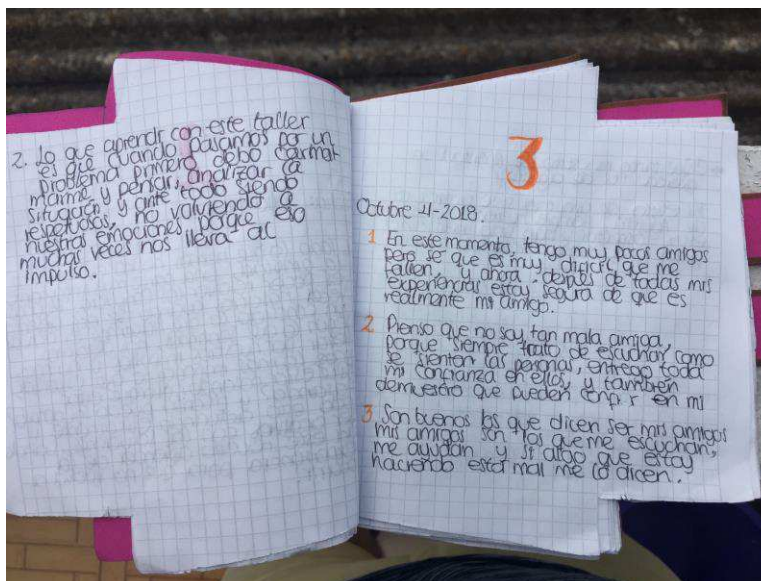 2. Lo que aprendí con este taller
es que cuando pasamos por un
problema primero debo carmar
marme y pensar, analizar la
situación y ante todo siendo
respetuosas, no volviendo a
nuestras emociones porque eso
muchas veces nos lleva al
impulso.
3
Octubre -4-2018.
1 En este momento, tengo muy pocos amigos
pero se que es muy dificil que me
fallen, y ahora depues de todas mis
experiencias estoy segura de que es
realmente mi amigo.
2 Pienso que no soy tan mala amiga,
porque siempre trato de escuchar como
se sienten las personas, entrego toda
mi confianza en ellos, y tambien
demuestro que pueden confir en mi
3 Son buenos los que dicen ser mis amigos
mis amigos son los que me escuchan,
me ayudan y si algo que estoy
haciendo esta mal me lo dicen.